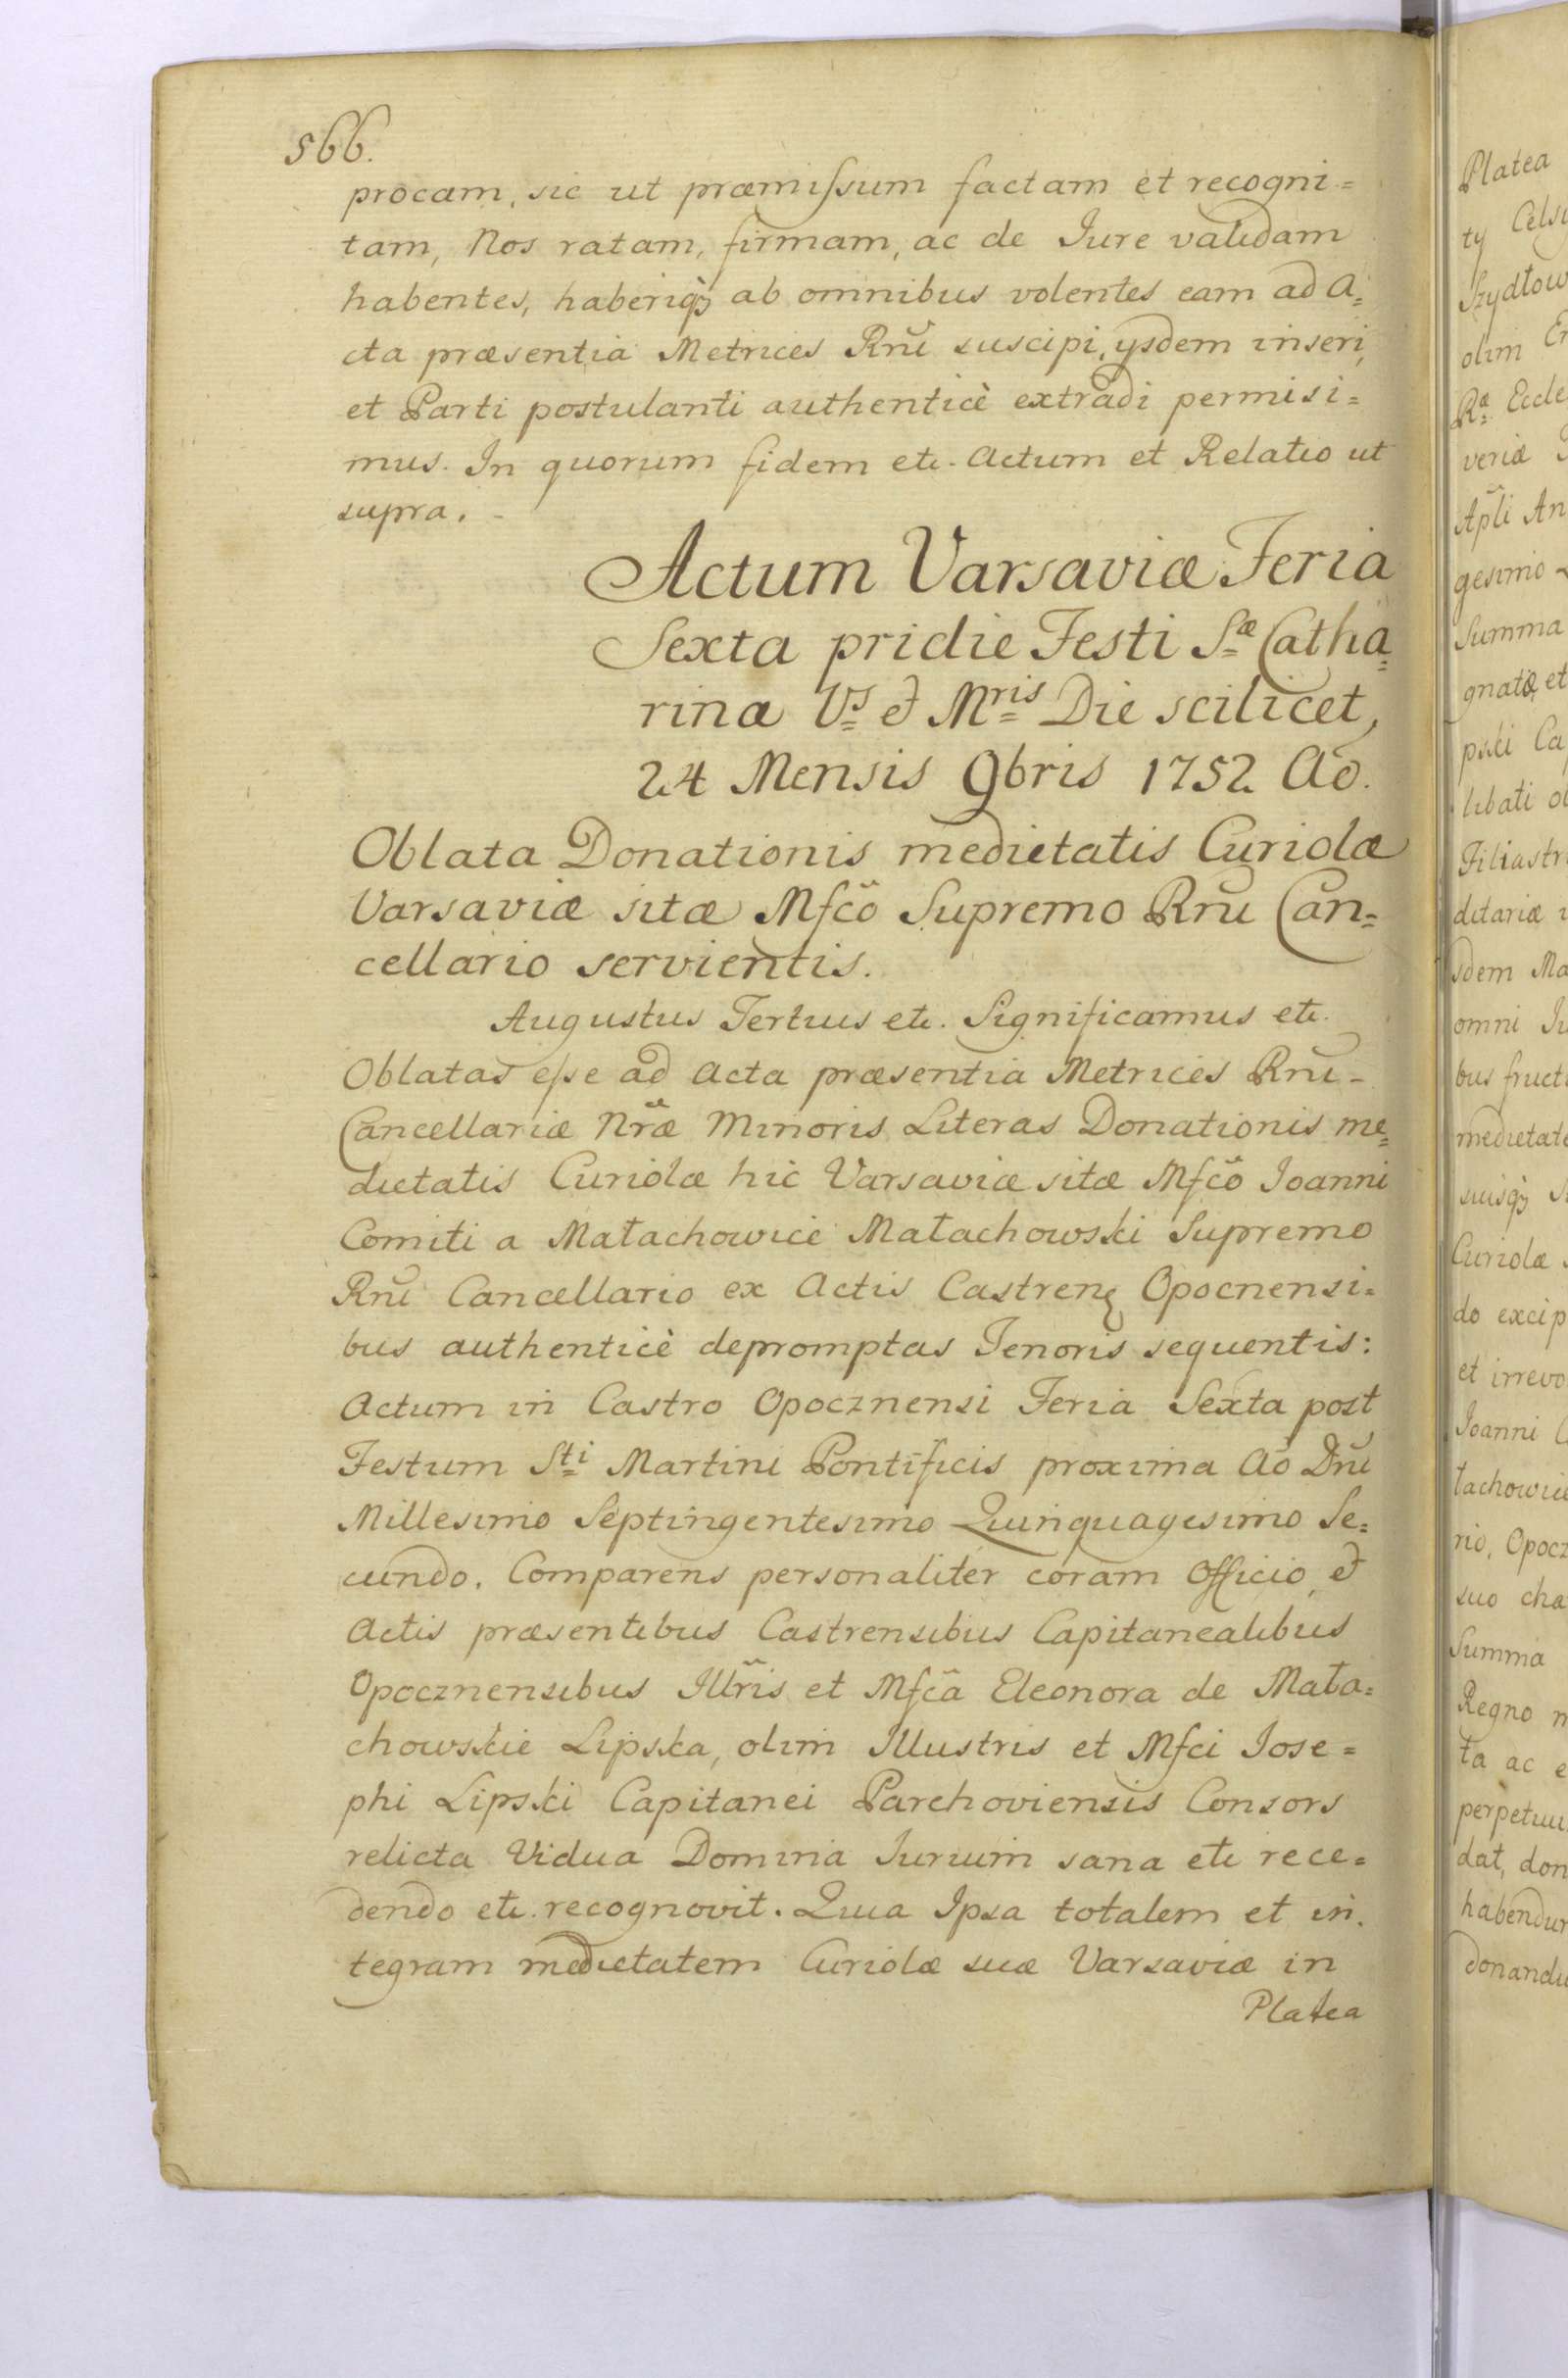 566.
procam, sic ut præmissum factam et recogni=
tam, Nos ratam, firmam, ac de Jure validam
habentes, haberiq₃ ab omnibus volentes eam ad A=
cta præsentia Metrices Rñi suscipi, ysdem inseri,
et Parti postulanti authenticè extradi permisi=
mus. In quorum fidem etc. Actum et Relatio ut
supra.
Actum Varsaviæ Feria
Sexta pridie Festi Sæ Catha=
rinæ Vs et Mris Die scilicet,
24 Mensis 9bris 1752 Aõ.
Oblata Donationis medietatis Curiolæ
Varsaviæ sitæ Mfcõ Supremo Rñi Can=
cellario servientis.
Augustus Tertius etc. Significamus etc.
Oblatas esse ad Acta præsentia Metrices Rñi
Cancellariæ Nræ Minoris Literas Donationis me=
dietatis Curiolæ hic Varsaviæ sitæ Mfcõ Joanni
Comiti a Małachowice Małachowski Supremo
Rñi Cancellario ex Actis Castren₃ Opocnensi=
bus authenticè depromptas Tenoris sequentis:
Actum in Castro Opocznensi Feria Sexta post
Festum Sti Martini Pontificis proxima Aõ Dñi
Millesimo Septingentesimo Quinquagesimo Se=
cundo. Comparens personaliter coram Officio, et
Actis præsentibus Castrensibus Capitanealibus
Opocznensibus Illr̃is et Mfcã Eleonora de Mała=
chowskie Lipska, olim Illustris et Mfci Jose=
phi Lipski Capitanei Parchoviensis Consors
relicta Vidua Domina Jurium sana etc rece=
dendo etc. recognovit. Quia Ipsa totalem et in=
tegram medietatem Curiolæ suæ Varsaviæ in
Platea
Platea
ty Cels
Szydłow
olim
Ræ Eccle
veriæ
Apl̃i An
gesimo
Summa
gnatæ et
pski Ca
libati
Filiastr
ditariæ
sdem Ma
omni Ju
bus fruct
medietat
suisq₃
Curiolæ
do excip
et irrevo
Joanni
łachowic
rio, Opocz
suo cha
Summa
Regno
ta ac
perpetuu
dat, don
habendu
donandu